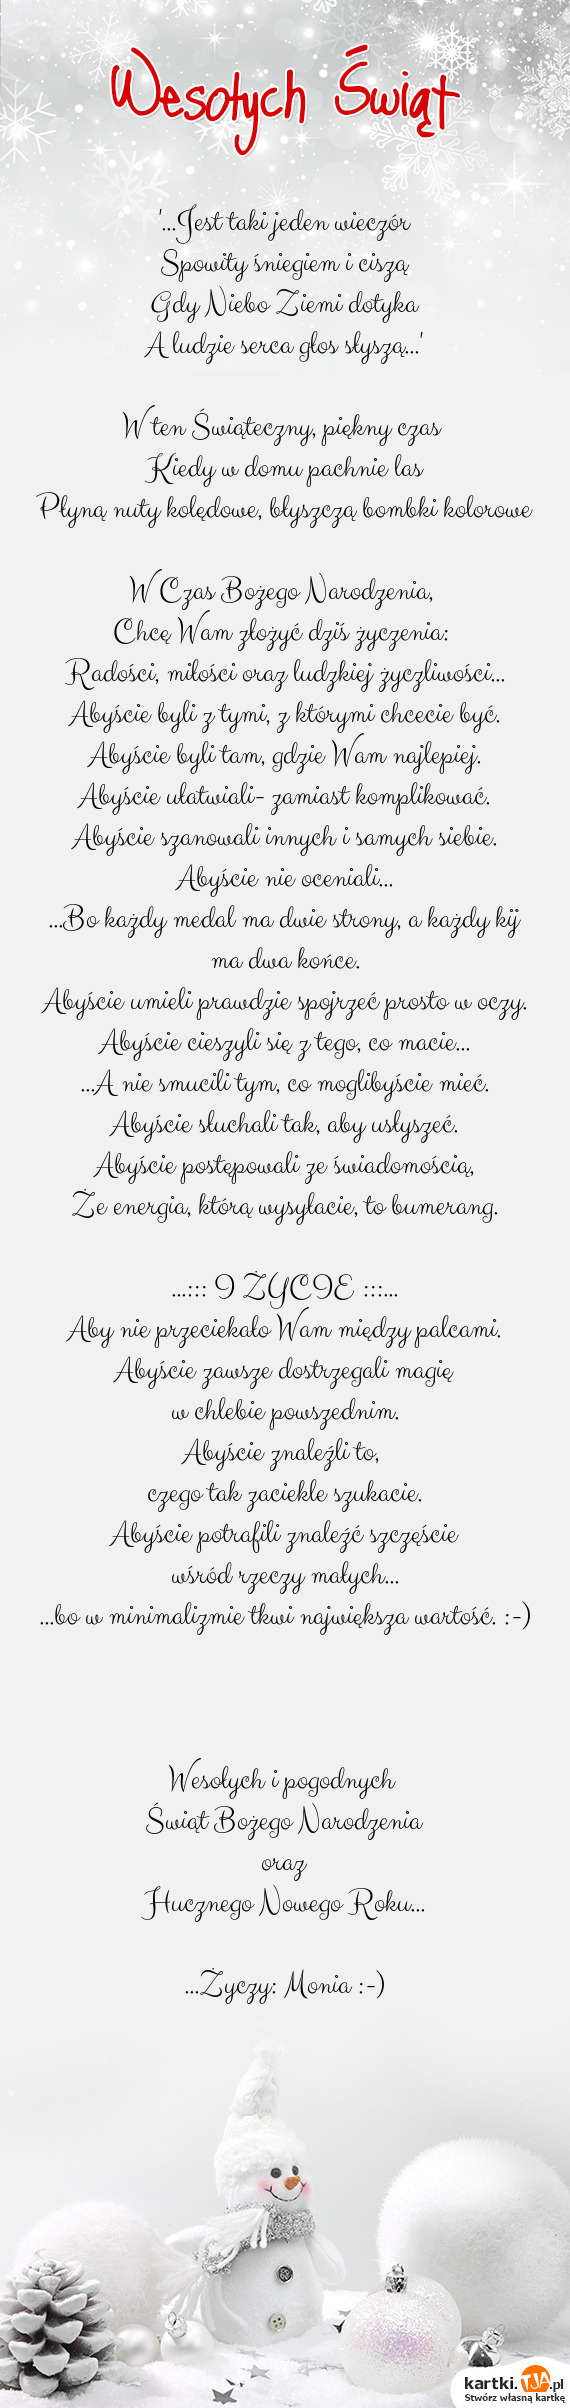 Wesołych Świąt
'...Jest taki jeden wieczór
Spowity śniegiem i ciszą
Gdy Niebo Ziemi dotyka
A ludzie serca głos słyszą...'
W ten Świąteczny, piękny czas
Kiedy w domu pachnie las
Płyną nuty kolędowe, błyszczą bombki kolorowe
W Czas Bożego Narodzenia,
Chcę Wam złożyć dziś życzenia:
Radości, miłości oraz ludzkiej życzliwości...
Abyście byli z tymi, z którymi chcecie być.
Abyście byli tam, gdzie Wam najlepiej.
Abyście ułatwiali- zamiast komplikować.
Abyście szanowali innych i samych siebie.
Abyście nie oceniali...
...Bo każdy medal ma dwie strony, a każdy kij
ma dwa końce.
Abyście umieli prawdzie spojrzeć prosto w oczy.
Abyście cieszyli się z tego, co macie...
...A nie smucili tym, co moglibyście mieć.
Abyście słuchali tak, aby usłyszeć.
Abyście postępowali ze świadomością,
Że energia, którą wysyłacie, to bumerang.
...::: I ŻYCIE :::...
Aby nie przeciekało Wam między palcami.
Abyście zawsze dostrzegali magię
w chlebie powszednim.
Abyście znaleźli to,
czego tak zaciekle szukacie.
Abyście potrafili znaleźć szczęście
wśród rzeczy małych...
...bo w minimalizmie tkwi największa wartość. :-)
Wesołych i pogodnych
Świąt Bożego Narodzenia
oraz
Hucznego Nowego Roku...
...Życzy: Monia :-)
kartki.TJA.pl
Stwórz własną kartkę